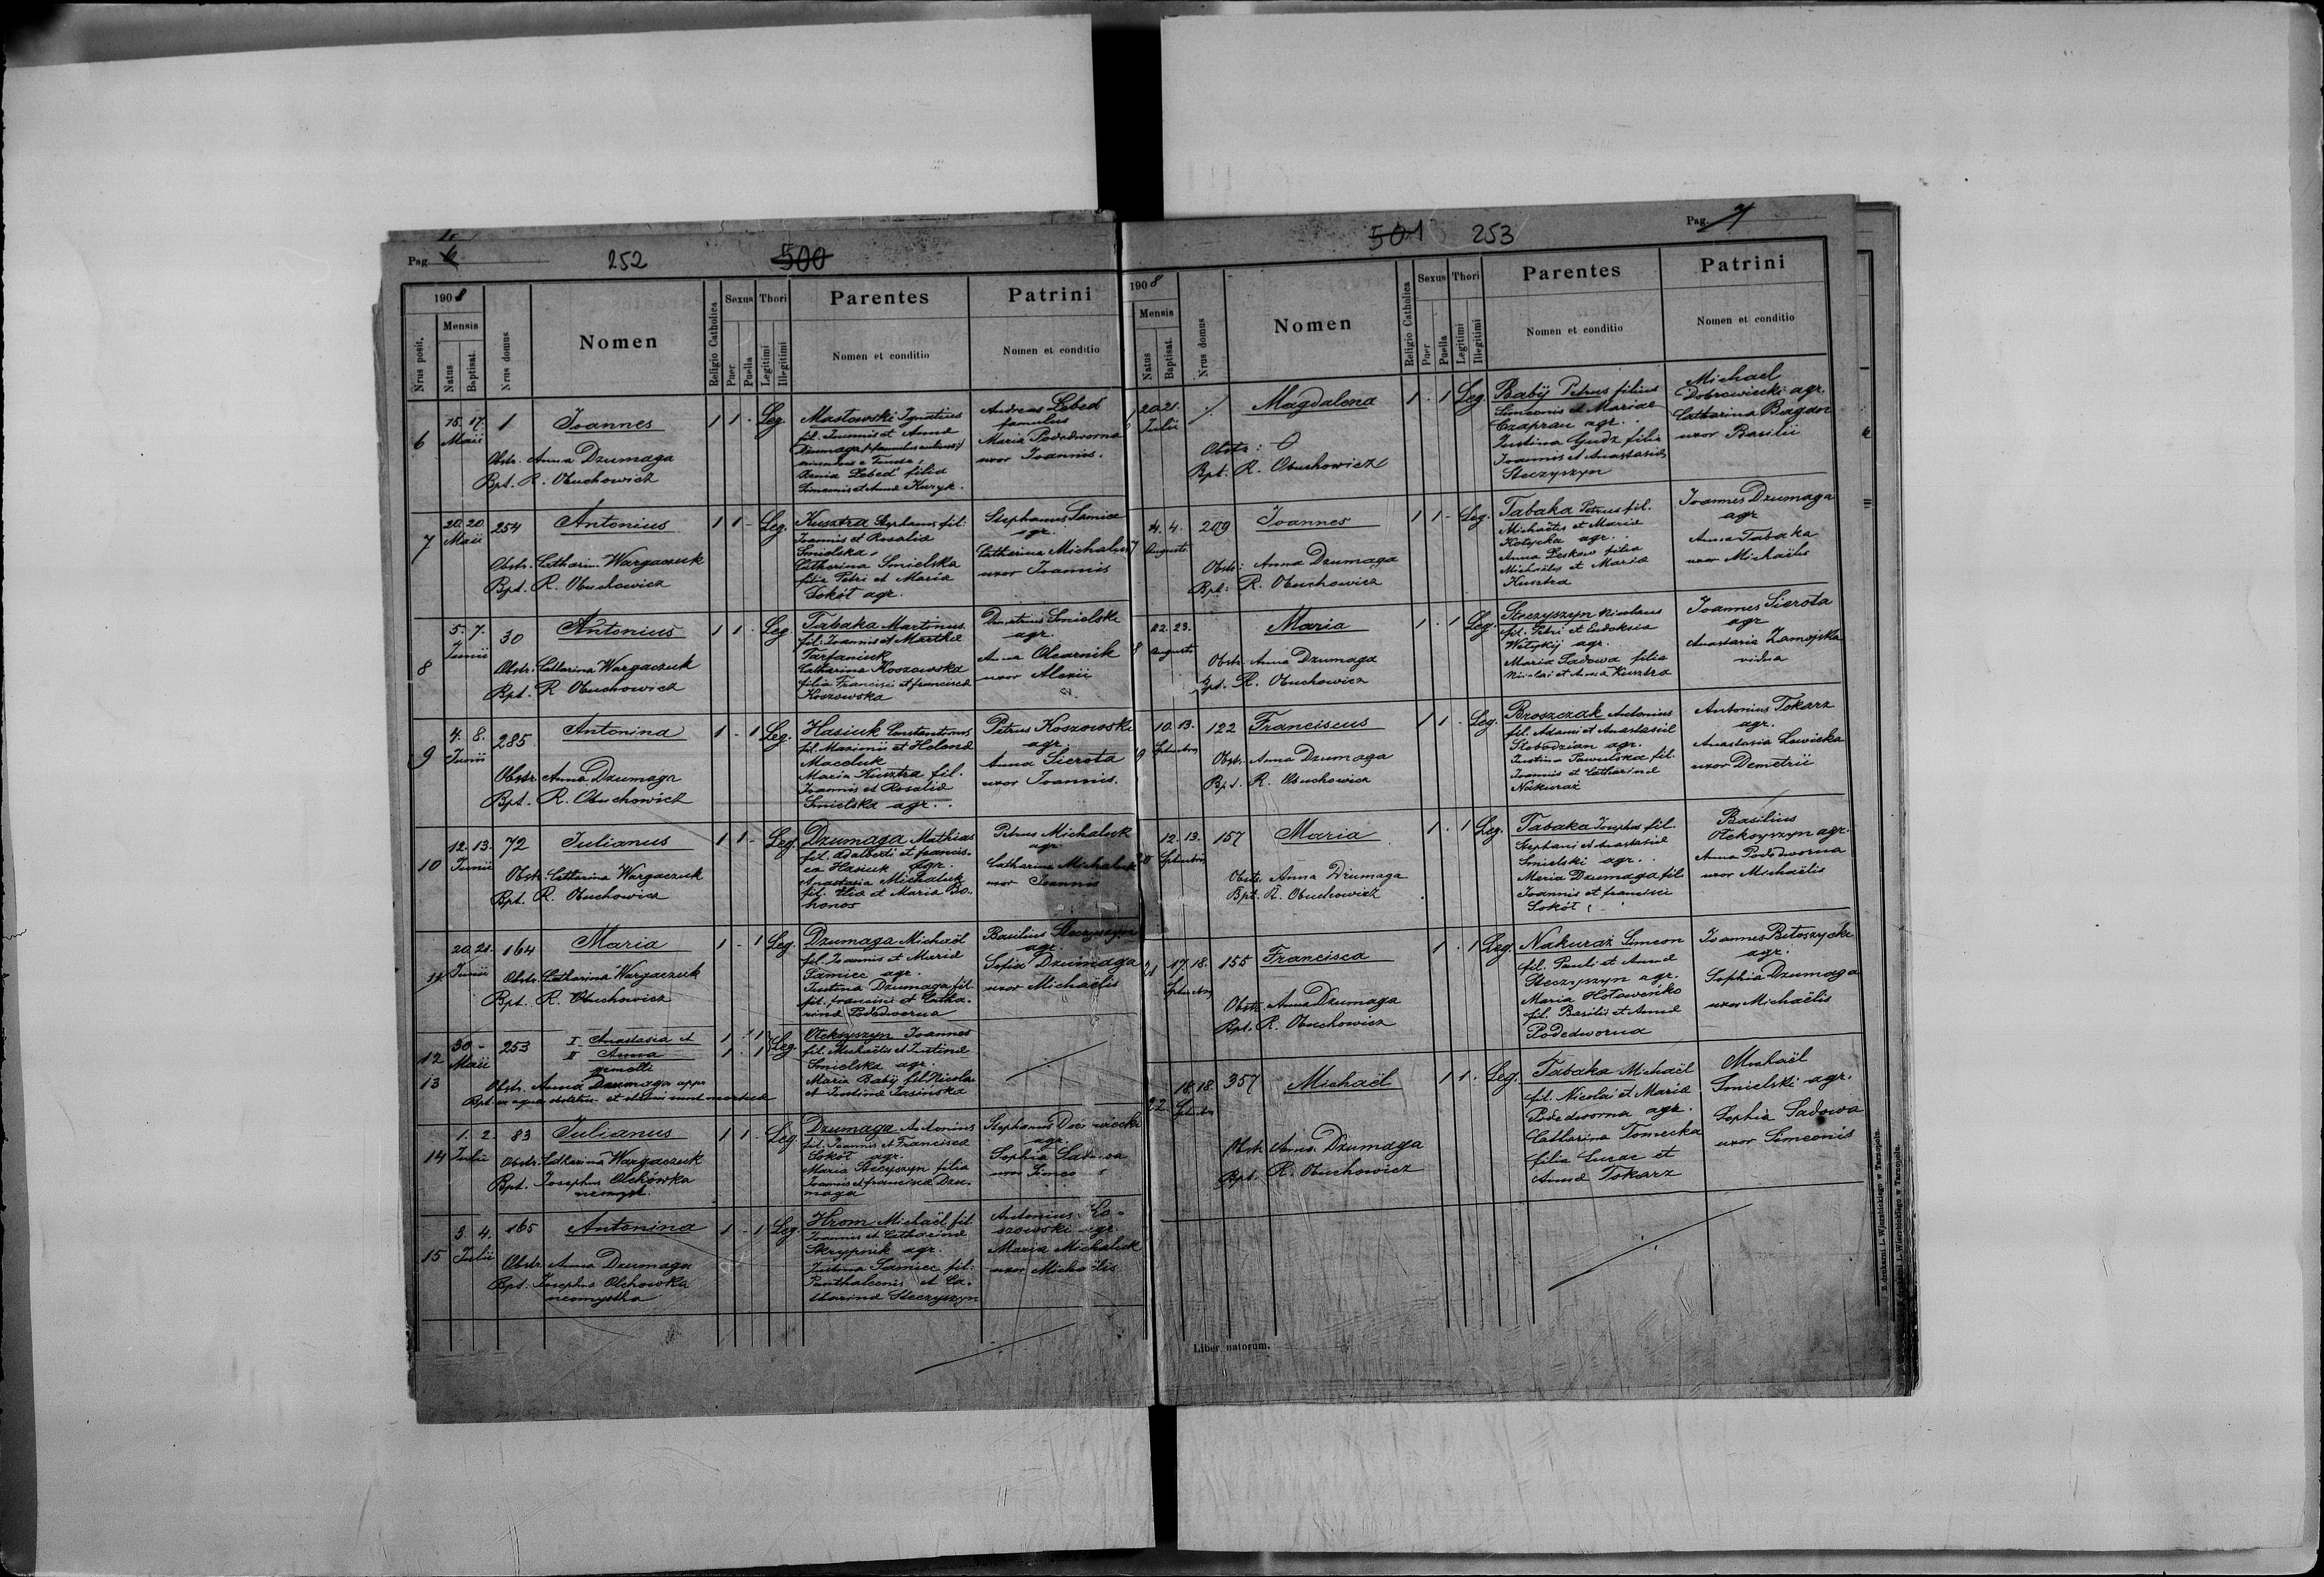 Pag. 6
252
500
1908
Nrus posit.
Mensis
Natus
Baptisat.
Nrus domus
Nomen
Religio Catholica
Sexus
Puer
Puella
Thori
Legitimi
Illegitimi
Parentes
Nomen et conditio
Patrini
Nomen et conditio
6
15. 17.
Maii
1
Joannes
1 1 - Leg.
Obstr. Anna Dzumaga
Bpt. R. Obuchowicz
Masłowski Ignatius
fil. Joannis et Annae
Dzumaga
Xenia Lebed filia
Simeonis et Annae Kuryk.
Andreas Lebed
famulus
Maria Podedworna
uxor Joannis.
7
20. 20.
Maii
254
Antonius
1 1 - Leg.
Obstr. Catharin. Wargaczuk
Bpt. R. Obuchowicz
Kusztra Stephanus fil.
Joannis et Rosalia
Smielska.
Catherina Smielska
filia Petri et Maria
Sokół agr.
Stephanus Samiec
agr.
Catherina Michaluk
uxor Joannis
8
5. 7.
Junii
30
Antonius
1 1 - Leg.
Obstr. Catharina Wargaczuk
Bpt. R. Obuchowicz
Tabaka Martinus
fil. Joannis et Marthae
Tarfaniuk
Catharina Koszowska
filia Francisci et Francisca
Koszowska
Demetrius Smielski
agr.
Anna Olearnik
uxor Alexii
9
4. 8.
Junii
285
Antonina
1 - 1 Leg.
Obstr. Anna Dzumaga
Bpt. R. Obuchowicz
Hasiuk Constantinus
fil. Maximii et Helenae
Maceluk
Maria Kusztra fil.
Joannis et Rosaliae
Smielska agr.
Petrus Koszowski
agr.
Anna Sierota
uxor Joannis.
10
12. 13.
Junii
72
Julianus
1 1 - Leg.
Obstr. Catharina Wargaczuk
Bpt. R. Obuchowicz
Dzumaga Mathias
fil. Adalberti et Francis-
ca Hasiuk agr.
Anastasia Michaluk
fil. Eliae et Maria Bo-
honos
Petrus Michaluk
agr.
Catharina Michaluk
uxor Joannis
11
20. 21.
Junii
164
Maria
1 - 1 Leg.
Obstr. Catharina Wargaczuk
Bpt. R. Obuchowicz
Dzumaga Michaël
fil. Joannis et Mariae
Samiec agr.
Justina Dzumaga fil.
fil. Francisci et Catha-
rinae Podedworna
Basilius Steczyszyn
agr.
Sofia Dzumaga
uxor Michaelis
12
13
30 -
Maii
253
I Anastasia et
II Anna
gemelli
1 - 1
1 - 1
Leg.
Obstr. Anna Dzumaga appr.
Ołeksyszyn Joannes
fil. Michaëlis et Justinae
Smielska agr.
Maria Babij fil. Nicolai
et Justinae Jasinska
14
1. 2.
Julii
83
Julianus
1 1 - Leg.
Obstr. Catharina Wargaczuk
Bpt. Josephus Olchowka
neomyst.
Dzumaga Antonius
fil. Joannis et Francisca
Sokół agr.
Maria Steczyszyn filia
Joannis et Francisca Dzu-
maga
Stephanus
agr.
Sophia Sadowa
uxor
15
3. 4.
Julii
165
Antonina
1 - 1 Leg.
Obstr. Anna Dzumaga
Bpt. Josephus Olchowka
neomystha
Hrom Michaël fil.
Joannis et Catharinae
Skrypnik agr.
Justina Samiec fil.
Panthaleonis et Ca-
tharinae Steczyszyn
Antonius Ko-
szowski agr.
Maria Michaluk
uxor Michaëlis
501
253
Pag. 7
1908
Mensis
Natus
Baptisat.
Nrus domus
Nomen
Religio Catholica
Sexus
Puer
Puella
Thori
Legitimi
Illegitimi
Parentes
Nomen et conditio
Patrini
Nomen et conditio
20. 21.
Julii
Magdalena
1 - 1 Leg.
Obstr: O
Bpt. R. Obuchowicz
Babij Petrus filius
Simeonis et Mariae
Czaprau agr.
Justina Gudz filia
Joannis et Anastasiae
Steczyszyn
Michael
Dobrowiecki agr.
Catharina Bagdan
uxor Basilii
7
4. 4.
Augusti
209
Joannes
1 1 - Leg.
Obstr: Anna Dzumaga
Bpt: R. Obuchowicz
Tabaka Petrus fil.
Michaëlis et Mariae
Kotycka agr.
Anna Leskow filia
Michaëlis et Mariae
Kusztra
Joannes Dzumaga
agr
Anna Tabaka
uxor Michaëlis
8
22. 23.
Augusti
Maria
1 - 1 Leg.
Obstr. Anna Dzumaga
Bpt. R. Obuchowicz
Steczyszyn Nicolaus
fil. Petri et Eudoksia
Wełykij agr.
Maria Sadowa filia
Nicolai et Anna Kusztra
Joannes Sierota
agr
Anastasia Zamojska
vidua
9
10. 13.
Septembris
122
Franciscus
1 1 - Leg.
Obstr. Anna Dzumaga
Bpt. R. Obuchowicz
Broszczak Antonius
fil. Adami et Anastasiae
Słobodzian agr.
Justina Pawulska fil.
Joannis et Catharinae
Nakuraż
Antonius Tokarz
agr.
Anastasia Lewicka
uxor Demetrii
20
12. 13.
Septembris
157
Maria
1 - 1 Leg.
Obstr. Anna Dzumaga
Bpt. R. Obuchowicz
Tabaka Josephus fil.
Stephani et Anastasiae
Smielski agr.
Maria Dzumaga fil
Joannis et Francisci
Sokół
Basilius
Ołeksyszyn agr.
Anna Podedworna
uxor Michaëlis
21
17. 18.
Septembris
155
Francisca
1 - 1 Leg.
Obstr. Anna Dzumaga
Bpt. R. Obuchowicz
Nakuraż Simeon
fil. Pauli et Annae
Steczyszyn agr.
Maria Hołoweńko
fil. Basilii et Annae
Podedworna
Joannes Biłoszycki
agr.
Sophia Dzumaga
uxor Michaëlis
22
18. 18.
Septembris
357
Michaël
1 1 - Leg.
Obstr. Anna Dzumaga
Bpt. R. Obuchowicz
Tabaka Michaël
fil. Nicolai et Mariae
Podedworna agr.
Catharina Tomecka
filia Lucae et
Annae Tokarz
Michaël
Smielski agr.
Sophia Sadowa
uxor Simeonis
Liber natorum.
Z drukarni L. Wierzbickiego w Tarnopolu.